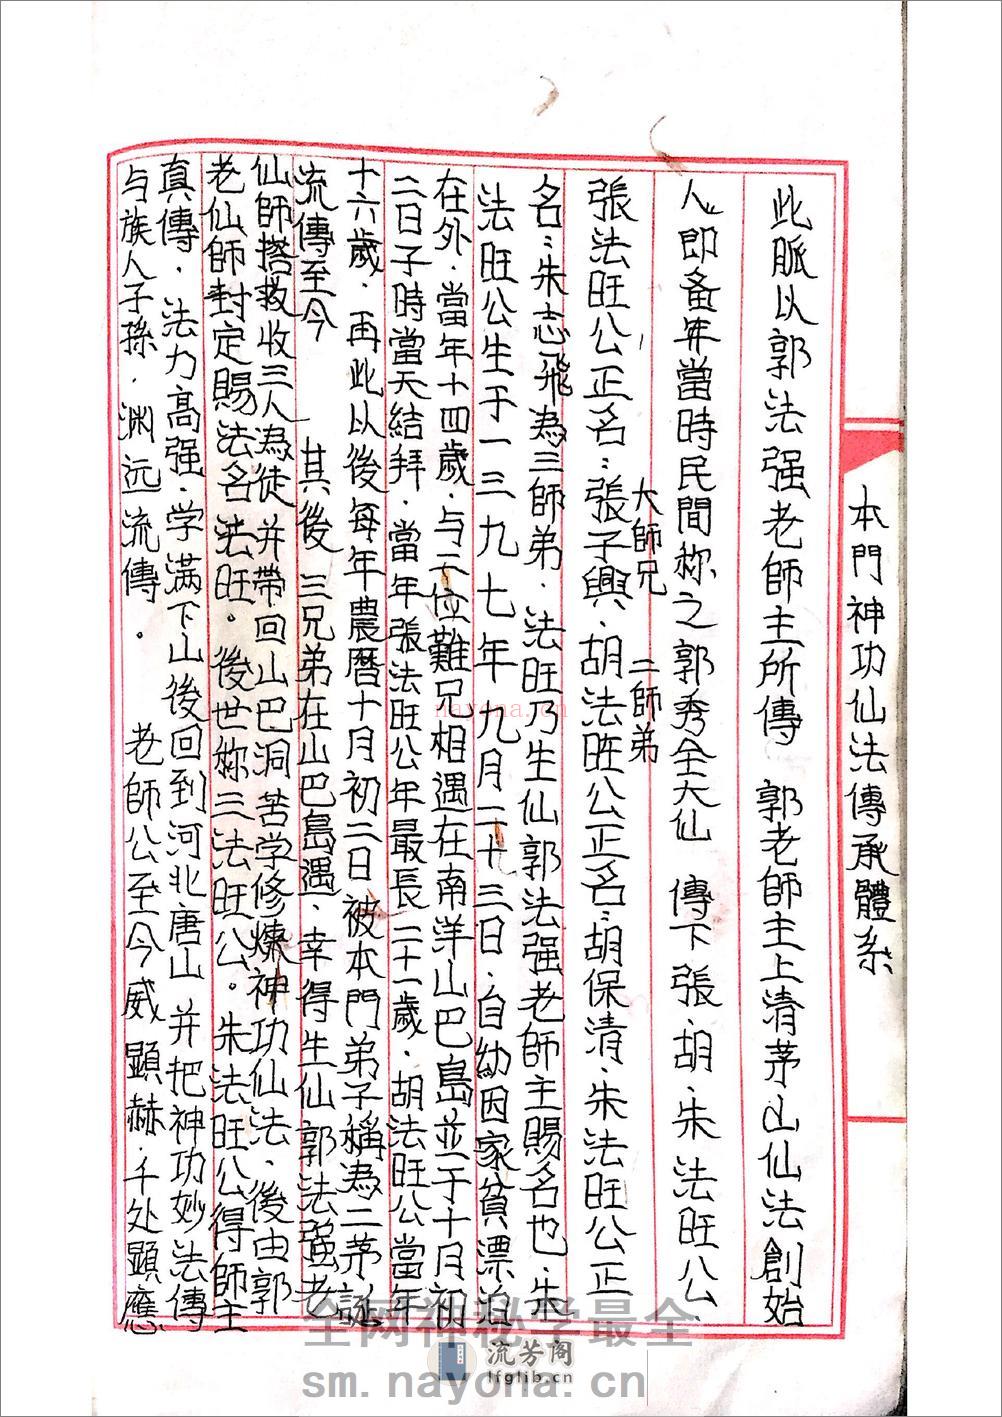 本門神功仙法傳承體系
此脈以郭法强老師主所傳 郭老師主上清茅山仙法創始
人即 年當時民間称之郭秀全大仙 傳下張、胡、朱法旺公、
大師兄 二師弟
張法旺公正名：張子興、胡法旺公正名：胡保清、朱法旺公正
名：朱志飛為三師弟．法旺乃生仙郭法强老師主賜名也．朱
法旺公生于一三九七年九月二十三日．自幼因家貧漂泊
在外．當年十四歲．与二位難兄相遇在南洋山巴島並于十月初
二日子時當天結拜．當年張法旺公年最長二十一歲．胡法旺公當年
十六歲．再此以後每年農曆十月初二日被本門弟子稱為二茅誕
流傳至今 其後 三兄弟在山巴島遇、幸得生仙郭法强老
仙師搭救收三人為徒并帶回山巴洞苦学修煉神功仙法、後由郭
老仙師封定賜法名法旺。後世称三法旺公。朱法旺公得師主
真傳．法力高强．学满下山後回到河北唐山并把神功妙法傳
与族人子孫．渊远流傳。 老師公至今威顯赫．千处顯應
nayona.cn
全网神秘学最全
流芳阁
lfglib.cn
sm.nayona.cn